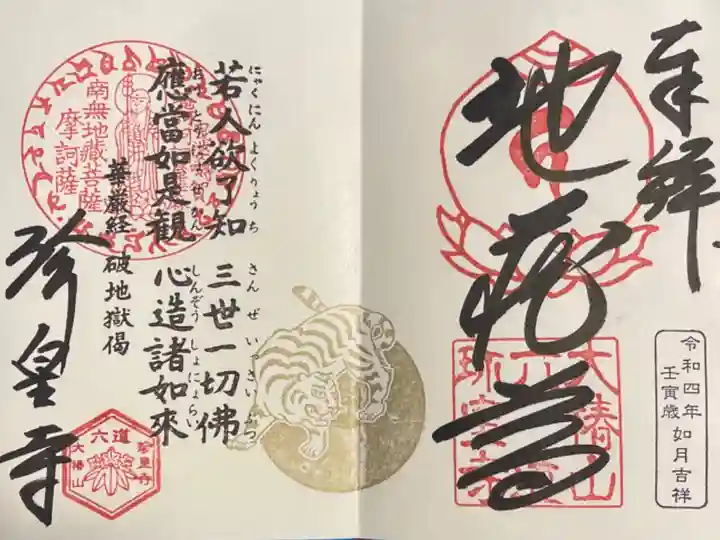 奉拝
地蔵尊
大椿山
六道
珎皇寺
令和四年
壬寅歳 如月吉祥
若人欲了知 三世一切佛
にゃくにん よくりょうち さんぜいっさいぶつ
應當如是観 心造諸如來
しんぞう しょにょらい
華厳経 破地獄偈
南無地藏菩薩
摩訶薩
珍皇寺
六道
大椿山
珍皇寺